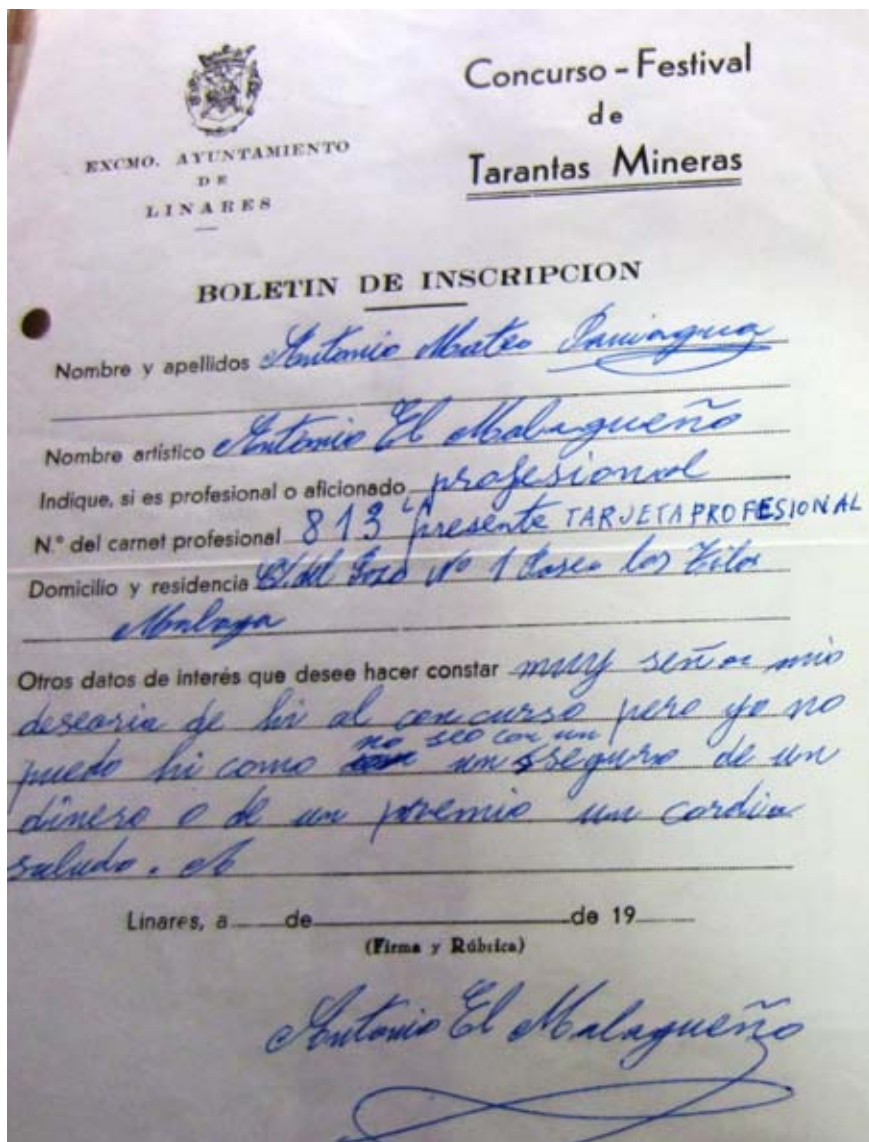 EXCMO. AYUNTAMIENTO
DE
LINARES
Concurso - Festival
de
Tarantas Mineras
BOLETIN DE INSCRIPCION
Nombre y apellidos Antonio Mateo Paniagua
Nombre artístico Antonio El Malagueño
Indique, si es profesional o aficionado profesional
N.º del carnet profesional 813 presente TARJETA PROFESIONAL
Domicilio y residencia C/. del Pozo Nº 1 Paseo los Tilos
Malaga
Otros datos de interés que desee hacer constar muy señor mio
desearia de hi al concurso pero yo no
puedo hi como no seo con un
un seguro de un
dinero o de un premio un cordia
saludo.
Linares, a de de 19
(Firma y Rúbrica)
Antonio El Malagueño